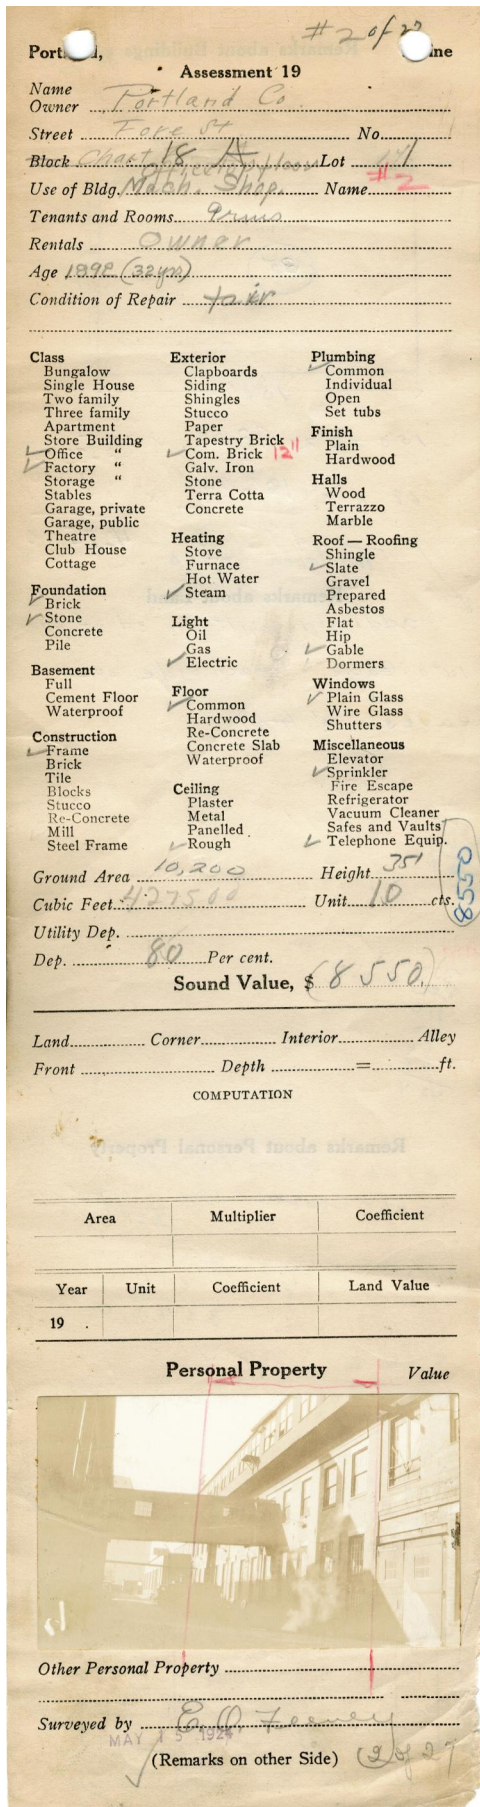 # 2 of 27
Portland, Maine
Assessment 19
Name
Owner Portland Co.
Street Fore St No.
Block Chart 18 A Lot
Office
#2
Use of Bldg. Mach. Shop. Name
Tenants and Rooms
Rentals Owner
Age 1898 (32 yrs)
Condition of Repair fair
Class
Bungalow
Single House
Two family
Three family
Apartment
Store Building
✓ Office "
✓ Factory "
Storage "
Stables
Garage, private
Garage, public
Theatre
Club House
Cottage
Foundation
✓ Brick
✓ Stone
Concrete
Pile
Basement
Full
Cement Floor
Waterproof
Construction
✓ Frame
Brick
Tile
Blocks
Stucco
Re-Concrete
Mill
Steel Frame
Exterior
Clapboards
Siding
Shingles
Stucco
Paper
Tapestry Brick
✓ Com. Brick 12"
Galv. Iron
Stone
Terra Cotta
Concrete
Heating
Stove
Furnace
Hot Water
✓ Steam
Light
Oil
Gas
✓ Electric
Floor
✓ Common
Hardwood
Re-Concrete
Concrete Slab
Waterproof
Ceiling
Plaster
Metal
Panelled
✓ Rough
Plumbing
✓ Common
Individual
Open
Set tubs
Finish
Plain
Hardwood
Halls
Wood
Terrazzo
Marble
Roof — Roofing
Shingle
✓ Slate
Gravel
Prepared
Asbestos
Flat
Hip
✓ Gable
Dormers
Windows
✓ Plain Glass
Wire Glass
Shutters
Miscellaneous
Elevator
✓ Sprinkler
Fire Escape
Refrigerator
Vacuum Cleaner
Safes and Vaults
✓ Telephone Equip.
Ground Area 10,200 Height 35'
8550
Cubic Feet 427500 Unit 10 cts.
Utility Dep.
Dep. 80 Per cent.
Sound Value, $ (8550.)
Land Corner Interior Alley
Front Depth = ft.
COMPUTATION
Remarks about Personal Property
Area Multiplier Coefficient
Year Unit Coefficient Land Value
19 .
Personal Property Value
Other Personal Property
Surveyed by E. O. Feeney
MAY 15 1924
(Remarks on other Side) (2 of 27